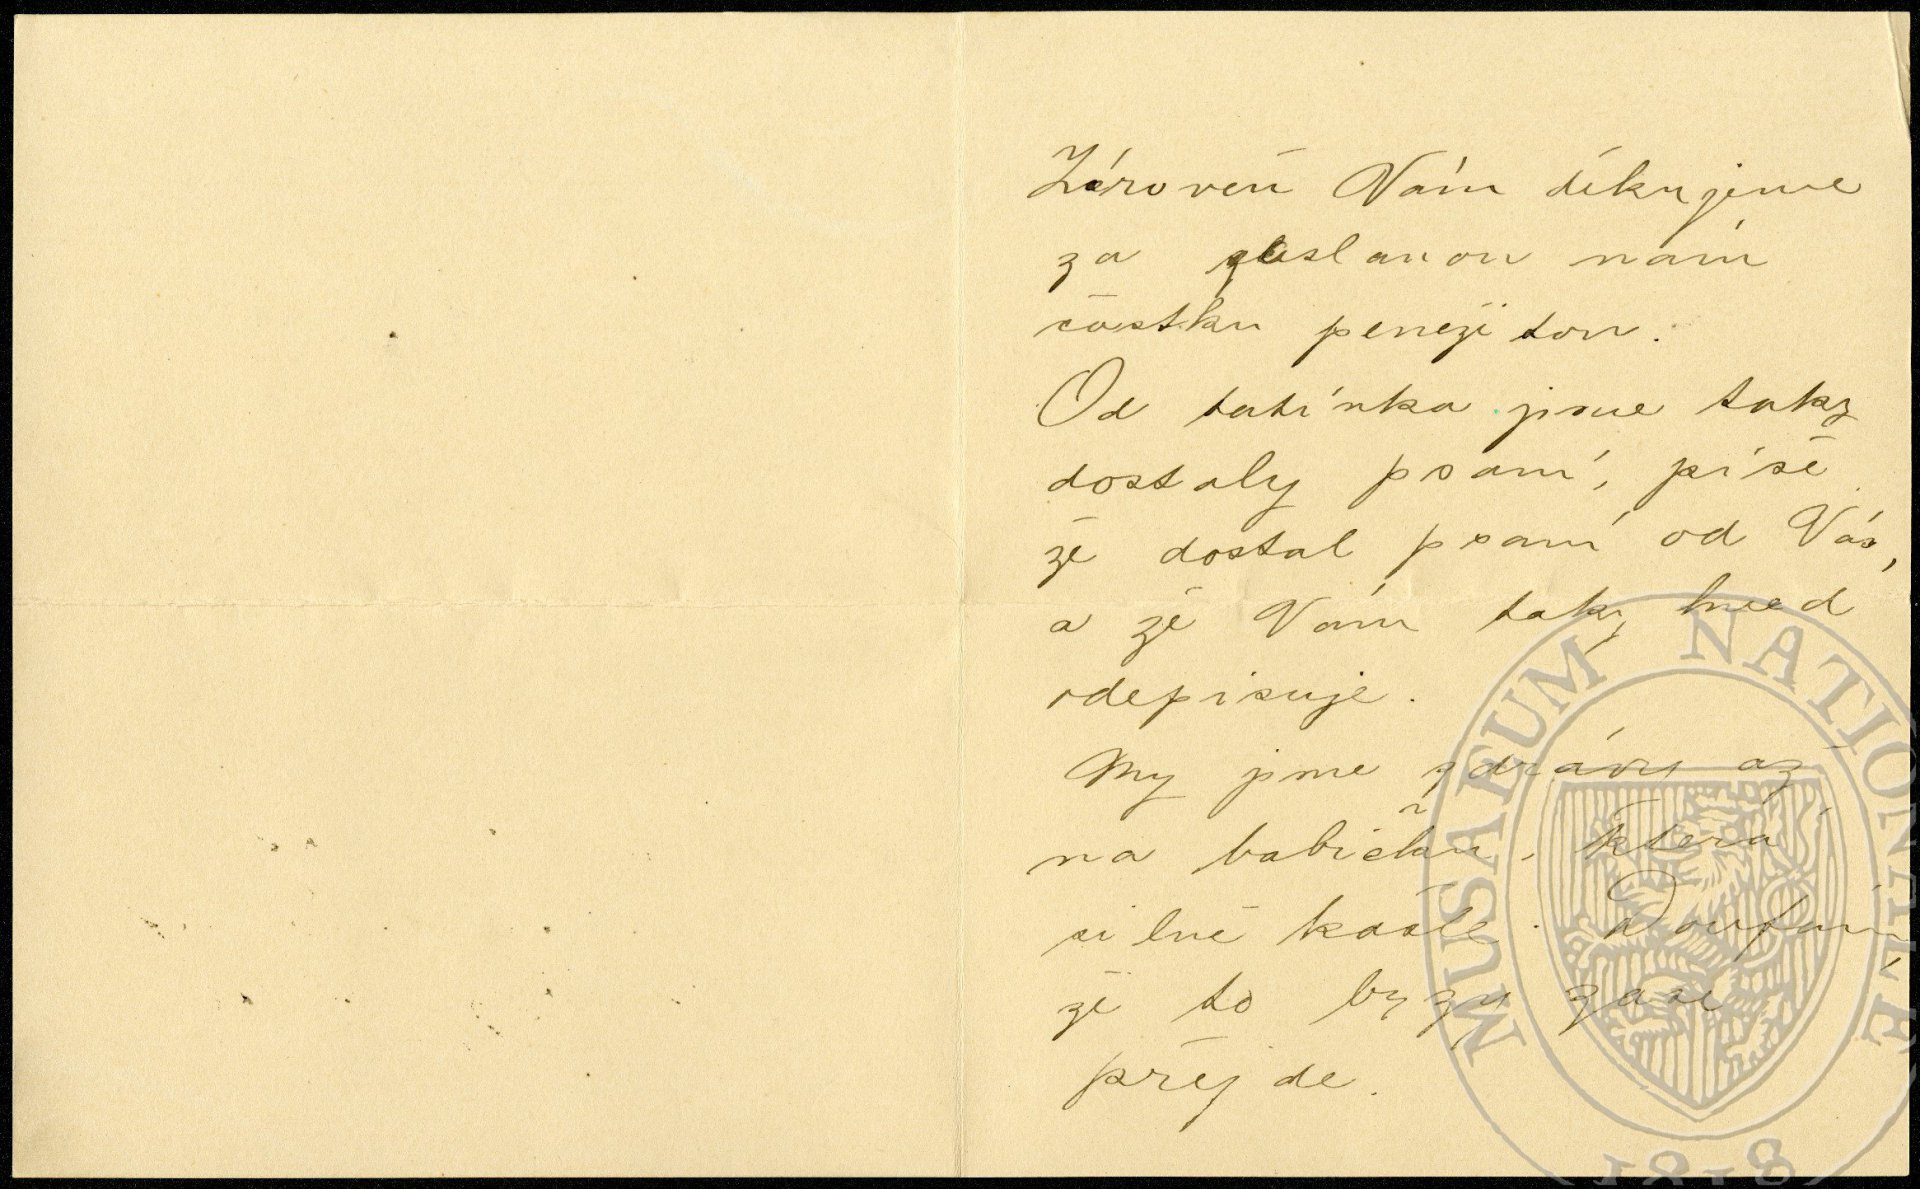 Zároveň Vám děkujeme
za zaslanou nám
částku peněžitou.
Od tatínka jsme taky
dostaly psaní, píše
že dostal psaní od Vás,
a že Vám taky hned
odepisuje.
My jsme zdrávy až
na babičku, která
silně kašle. Doufám
že to brzy zase
přejde.
MUSAEUM NATIONALE
1818